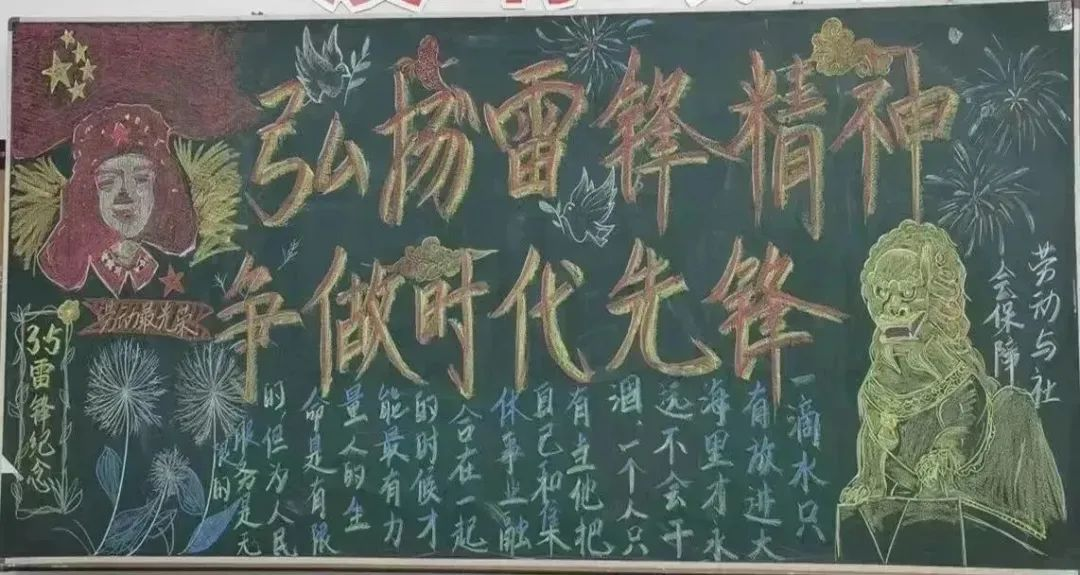 弘扬雷锋精神
争做时代先锋
劳动最光荣
35雷锋纪念
劳动与社
会保障
一滴水只
有放进大
海里才永
远不会干
涸、一个人只
有当他把
自己和集
体事业融
合在一起
的时候才
能最有力
量人的生
命是有限
的,但为人民
服务是无
限的